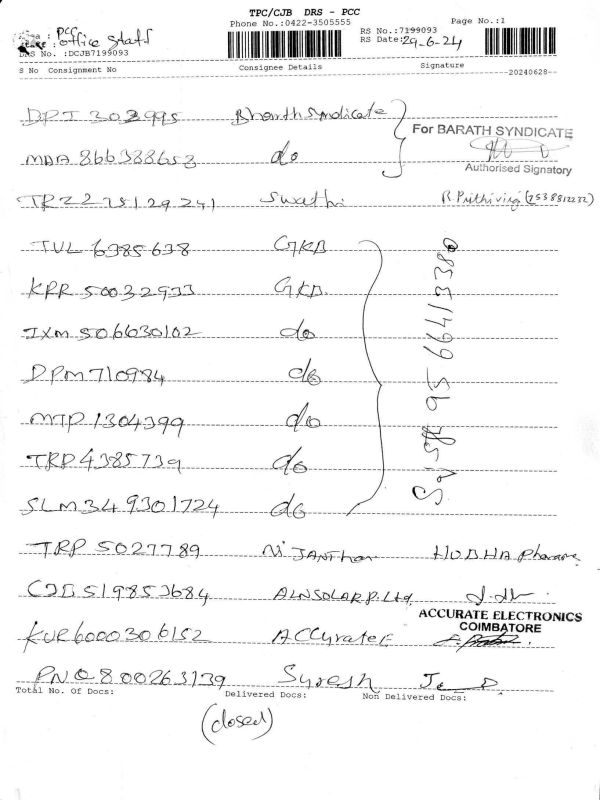 TPC/CJB DRS - PCC
Phone No.:0422-3505555 Page No.:1
Area : PCC RS No.:7199093
office Staff RS Date:29-6-24
DRS No. :DCJB7199093
S No Consignment No Consignee Details Signature
--20240628--
DPI 302995 Bharath Syndicate
For BARATH SYNDICATE
MDA 866388653 do
Authorised Signatory
TRZ 275129241 Swathi R Prithiviraj (7538812232)
TUL 6385638 GKB
KRR 50032933 GKB
IXM 506630102 do
DPM 710984 do
MTP 1304399 do
TRP 4385739 do
SLM 349301724 do
9566413380
TRP 5027789 Nijanthan HUBHA Pharma
CJB 519853684 ALNSOLAR P. Ltd.
ACCURATE ELECTRONICS
COIMBATORE
KUR6000306152 ACCurate E
PNQ 800263139 Suresh
Total No. Of Docs: Delivered Docs: Non Delivered Docs:
(closed)